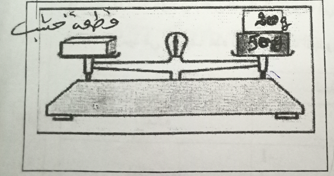 قطعة خشب
200g
50g